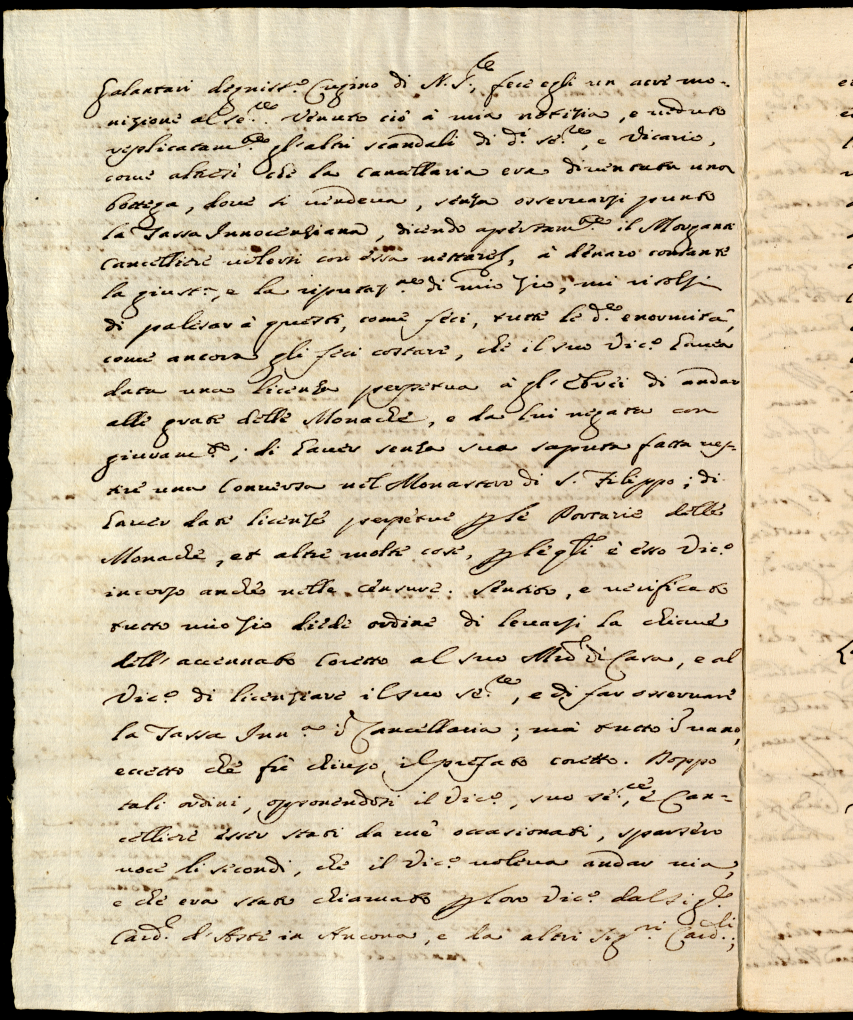 Galantari degniss.º Cugino di N. S.re, fece egli un acre mo-
nizione al Se.rio. Venuto ciò à mia notizia, e veduto
replicatam.te gl'altri scandali di d.º Se.rio, e Vicario,
come altresì che la Cancellaria era diventata una
bottega, dove si vendeva, senza osservarsi punto
la Tassa Innocenziana, dicendo apertam.te il Morganti
Cancelliere volersi con essa nettarsi, à denaro contante
la giust.ª, e la riputaz.ne di mio Zio, mi risolsi
di palesar à questi, come feci, tutte le d.e enormità,
come ancora gli feci costare, che il suo Vic.º haveva
data una licenza perpetua à gl'Ebrei di andar
alle grate delle Monache, e da lui negata con
giuram.to; di haver senza sua saputa fatta ves-
tire una Conversa nel Monastero di S. Filippo; di
haver date licenze perpetue p le Portarie delle
Monache, et altre molte cose, p le q.li è esso Vic.º
incorso anche nelle Censure. Sentito, e verificato
tutto mio Zio diede ordine di levarsi la chiave
dell'accennato Coretto al suo M.ro di Casa, e al
Vic.º di licenziare il suo Se.rio, e di far osservare
la Tassa Inn.na in Cancellaria; mà tutto in vano,
eccetto che fù chiuso il prefato coretto. Doppo
tali ordini, opponendosi il Vic.º, suo Se.rio, e Can-
celliere esser stati da me occasionati, sparsero
voce li secondi, che il Vic.º voleva andar via,
e che era stato chiamato p loro Vic.º dal Sig.r
Card.l d'Aste in Ancona, e da altri Sig.ri Card.li;